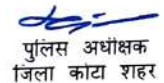 पुलिस अधीक्षक
जिला कोटा शहर